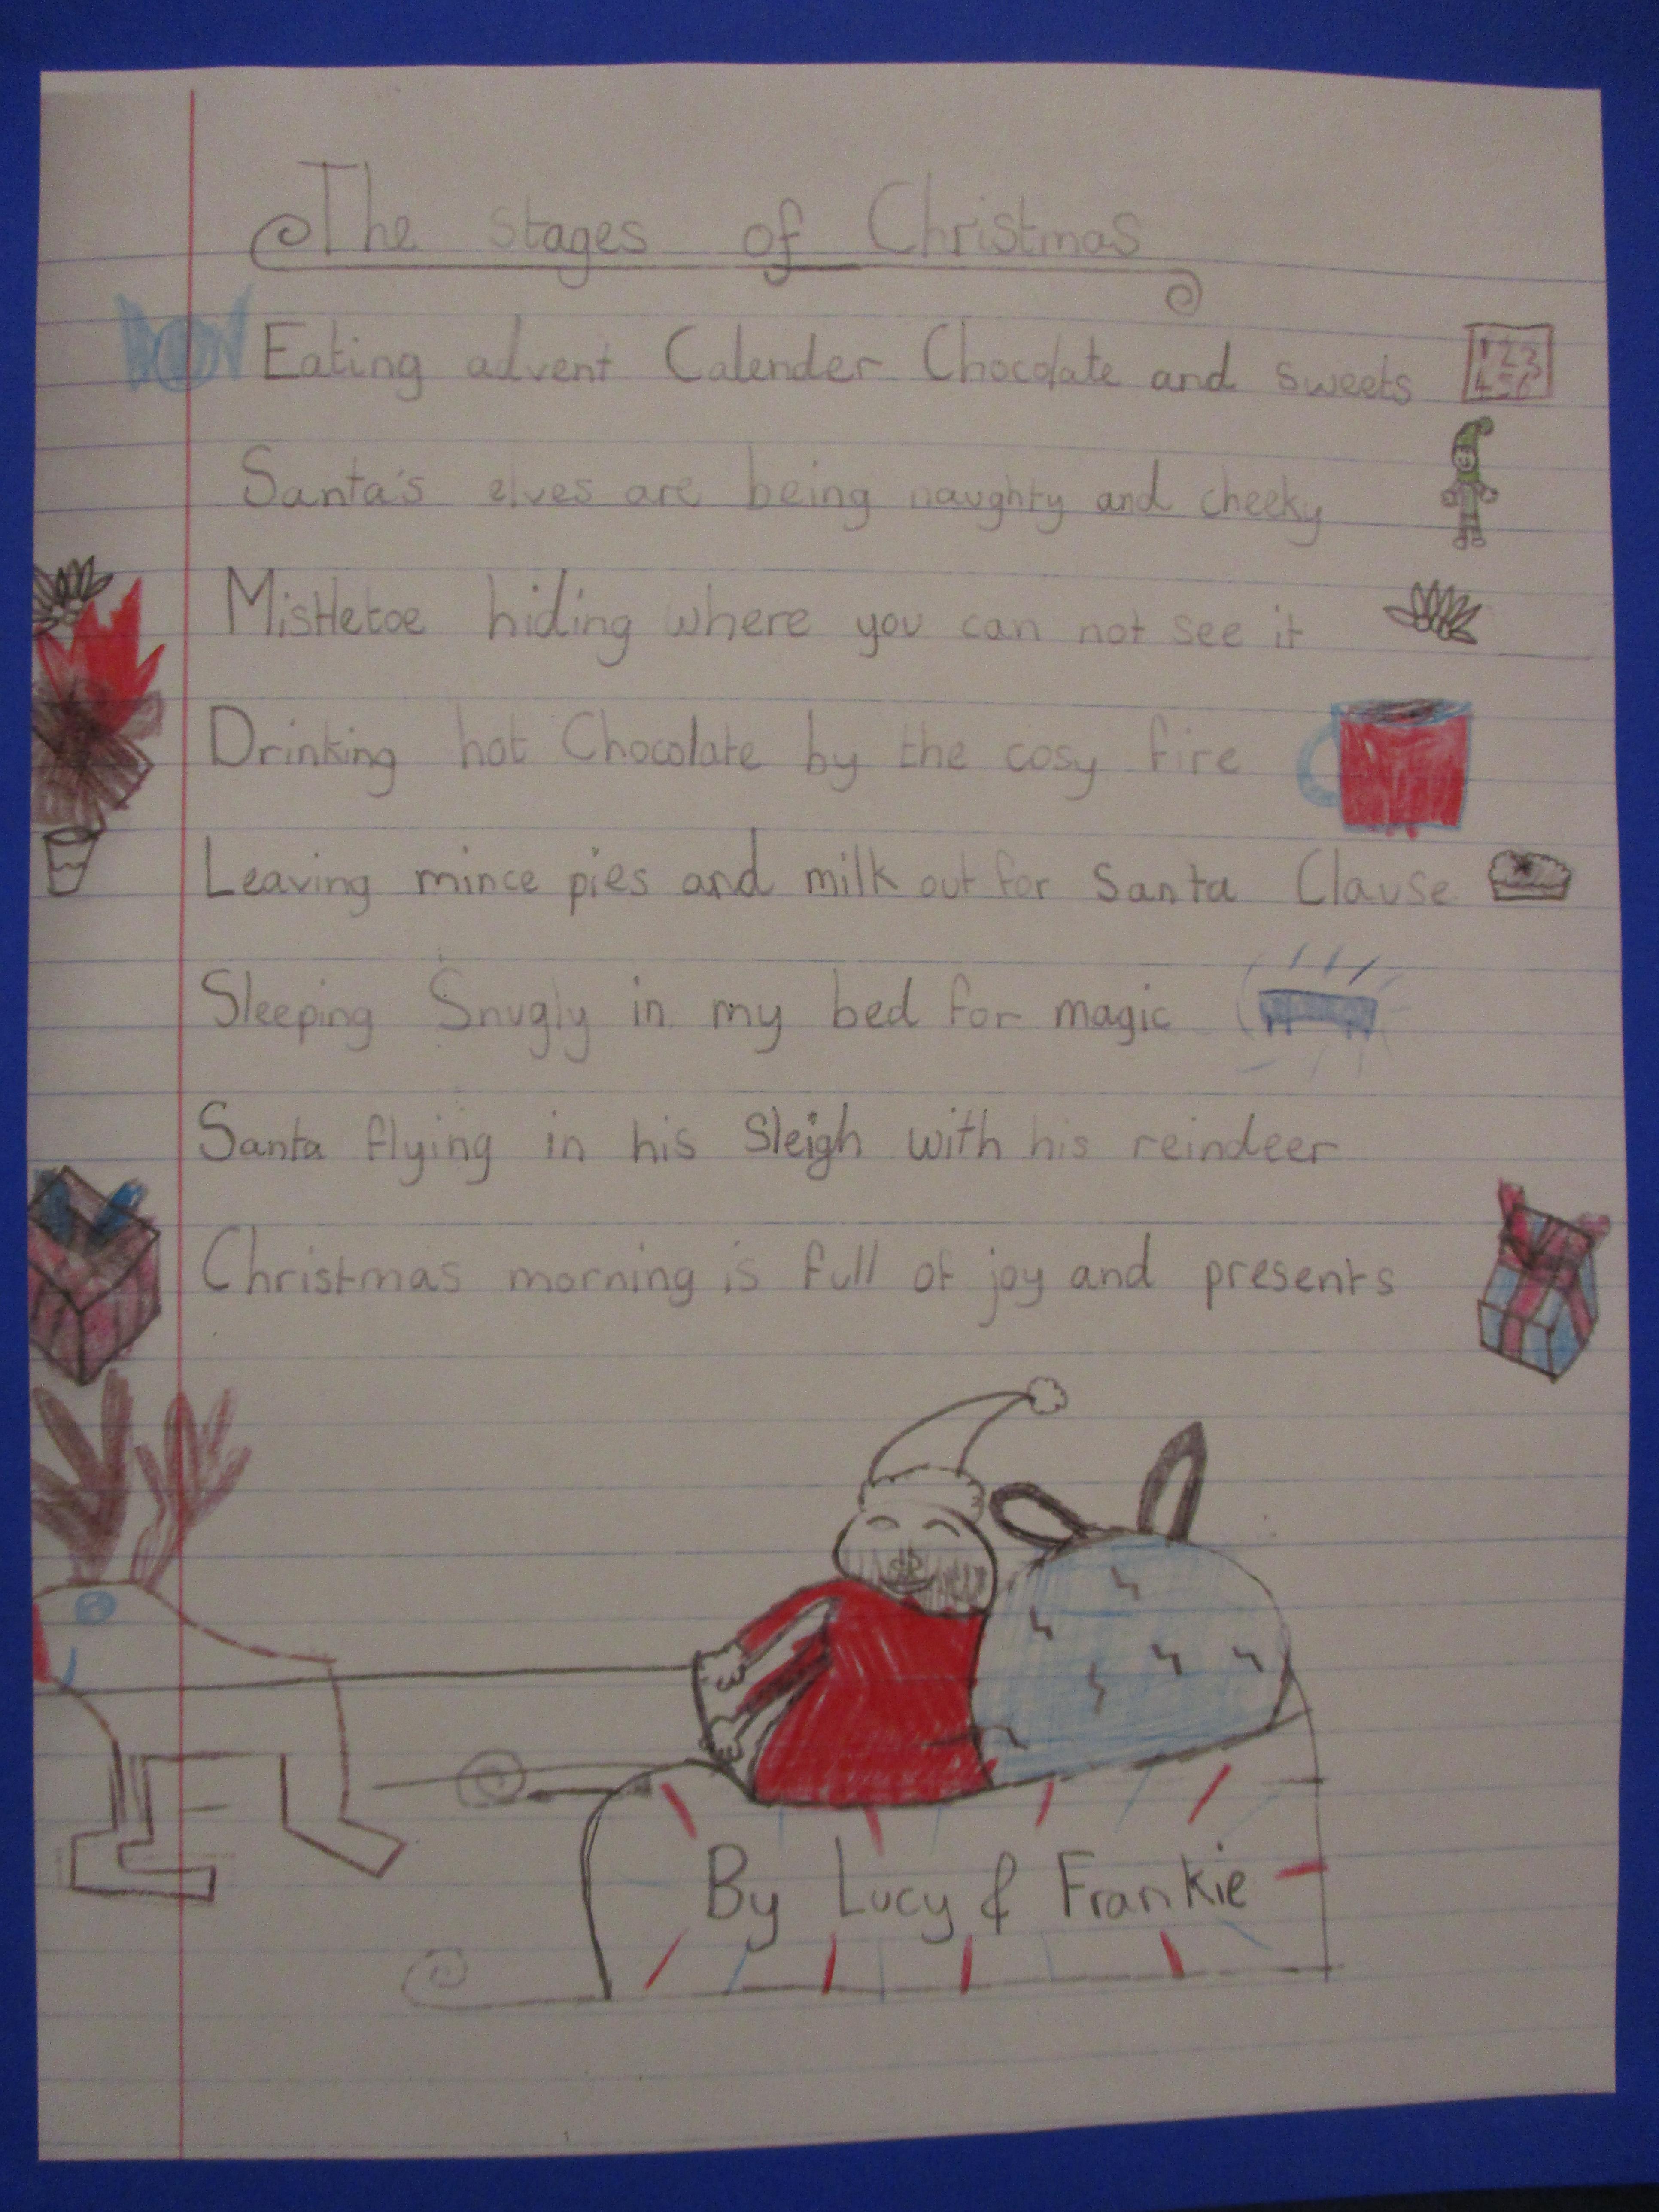 The stages of Christmas
Eating advent Calender Chocolate and sweets
1 2 3
4 5 6
Santa's elves are being naughty and cheeky
Mistletoe hiding where you can not see it
Drinking hot Chocolate by the cosy fire
Leaving mince pies and milk out for Santa Clause
Sleeping Snugly in my bed for magic
Santa flying in his Sleigh with his reindeer
Christmas morning is full of joy and presents
By Lucy & Frankie